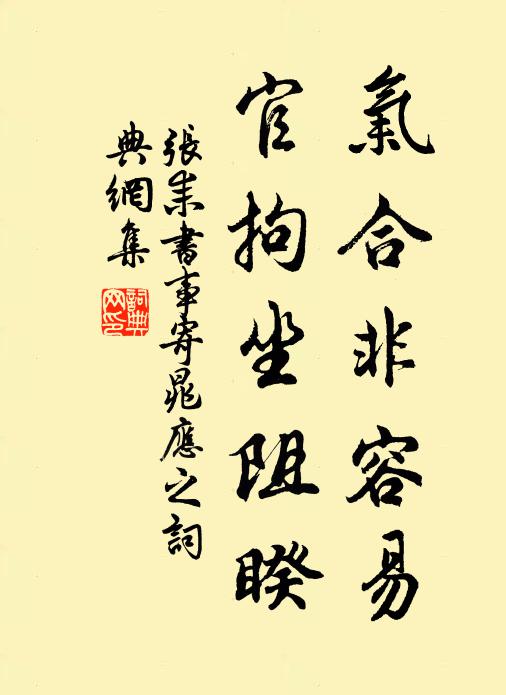 氣合非容易
官拘坐阻暌
張耒書事寄晁應之詞
典網集
詞典
網印